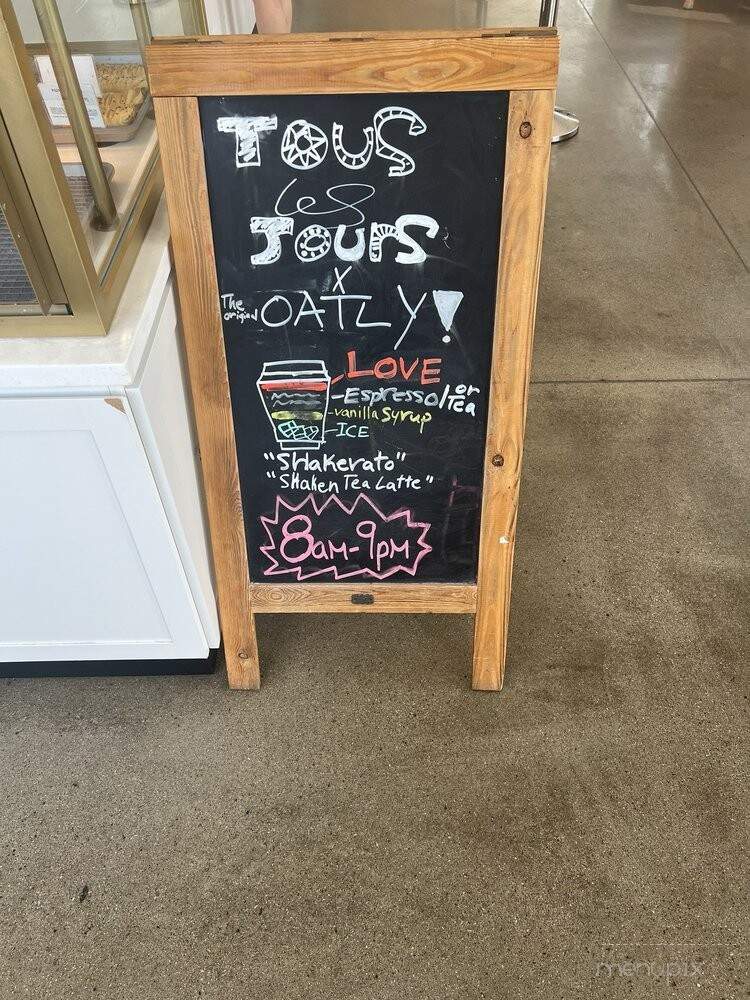 TOUS
les
JOURS
X
The original OATLY!
LOVE
Espresso/or Tea
vanilla syrup
ICE
"SHakerato"
"SHaken Tea Latte"
8am-9pm
menupix